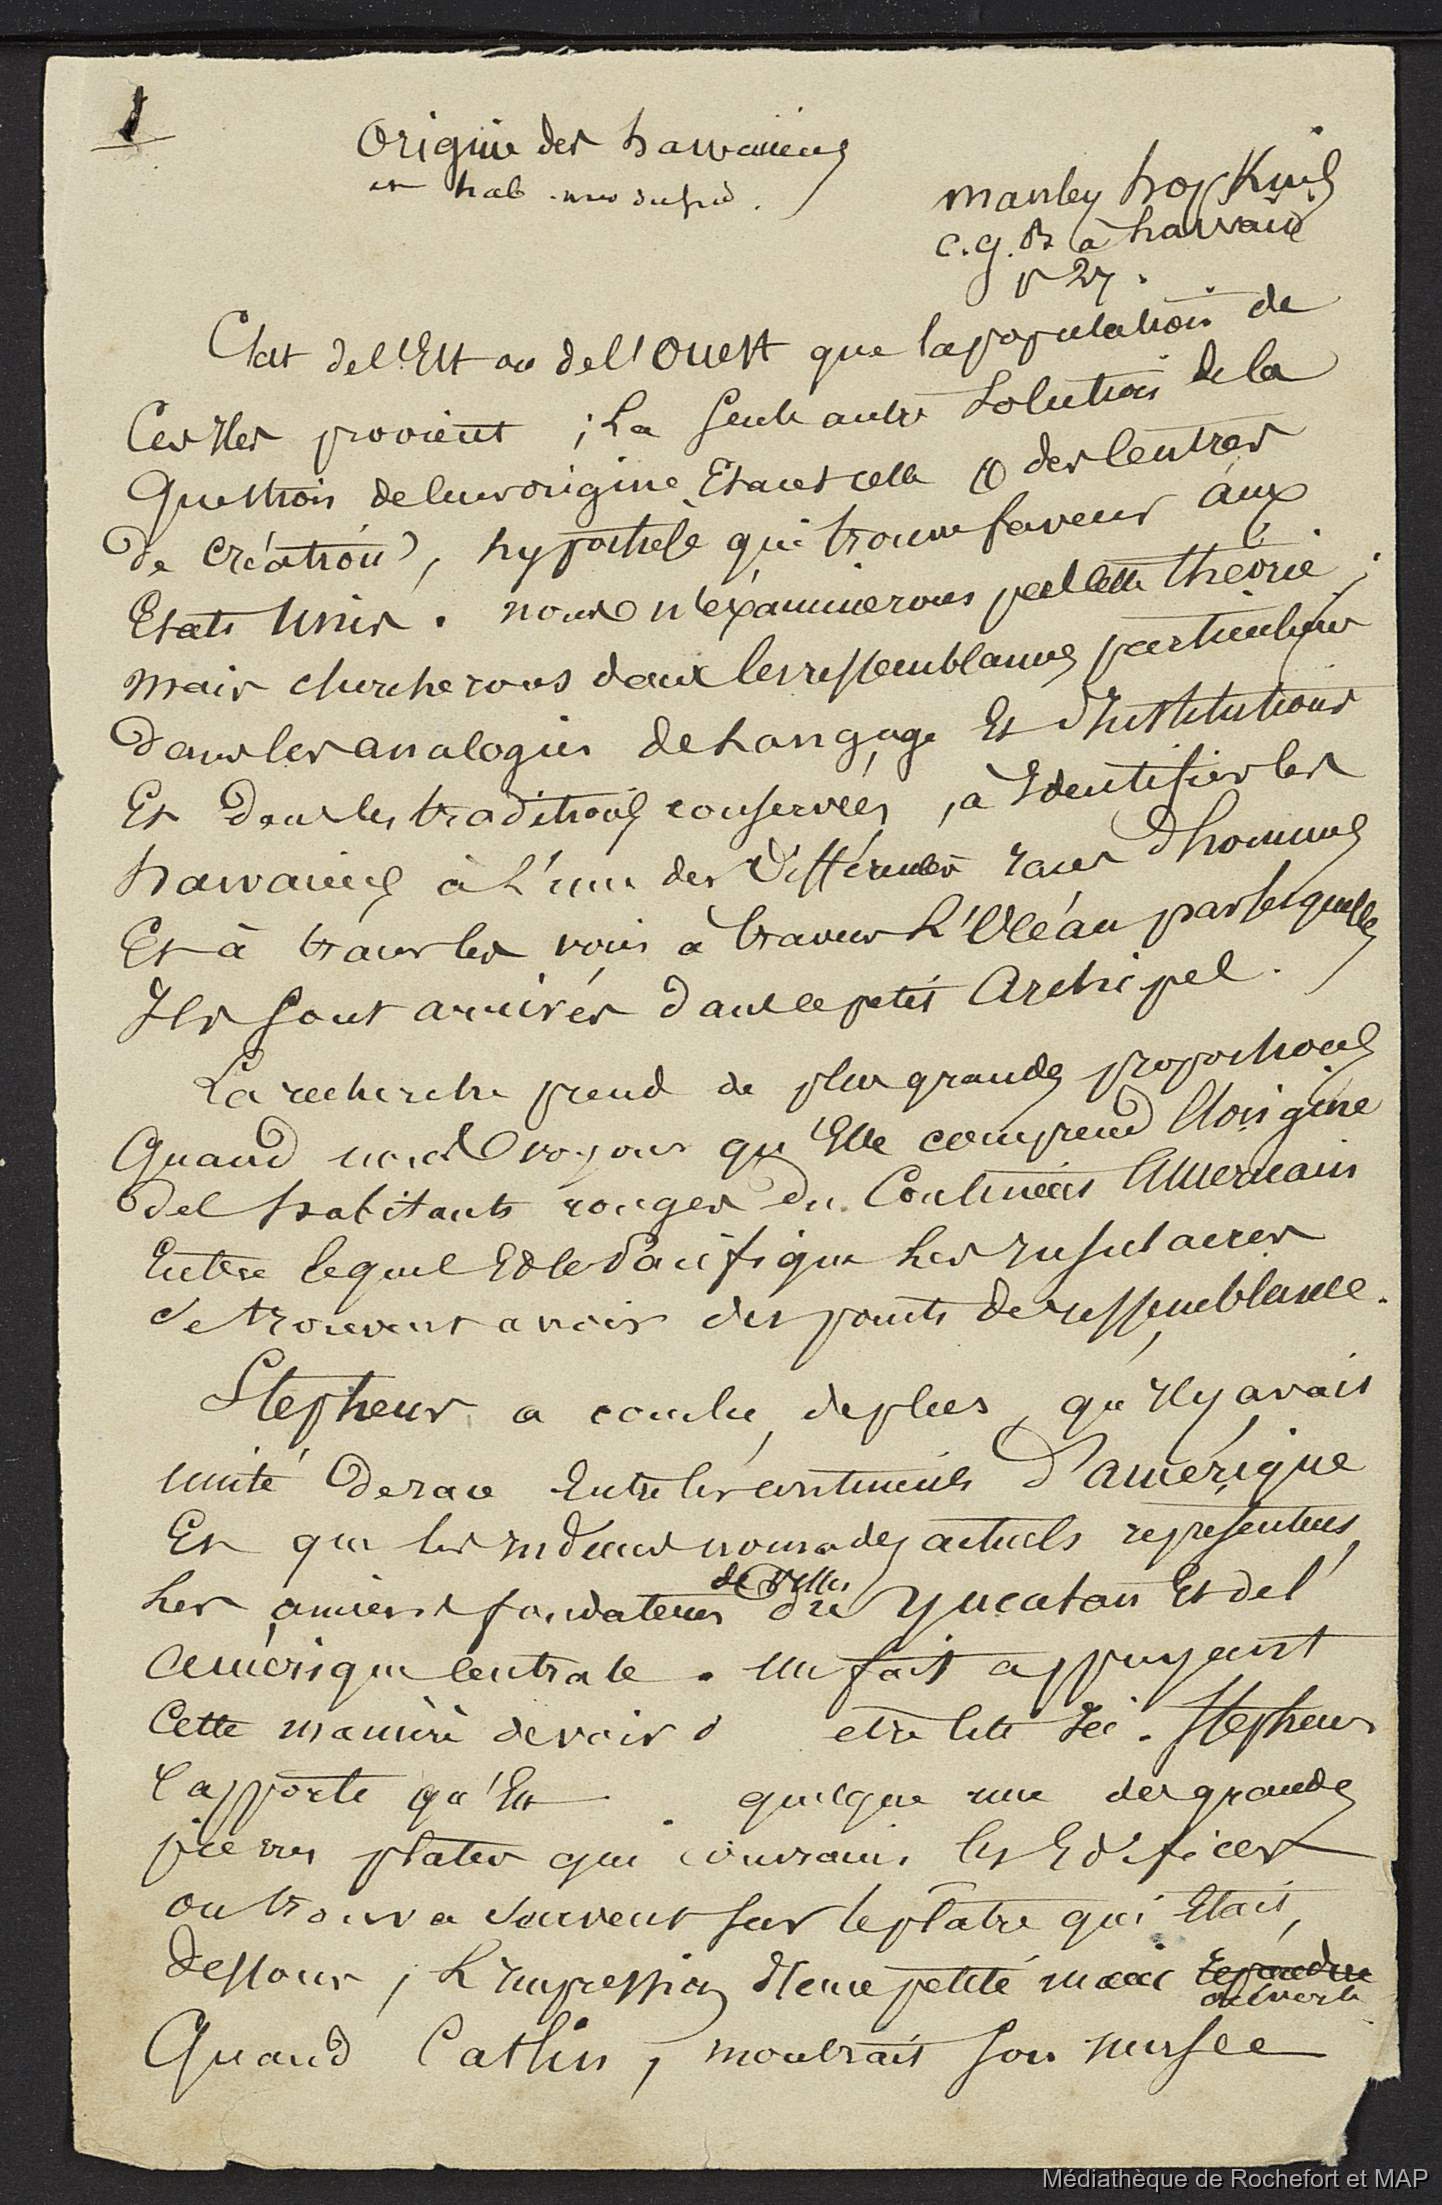 1
Origine des hawaiiens
et hab
Manley Hopkins
c. g. à hawaii
p 27.
C'est de l'Est ou de l'Ouest que la population de
Ces Iles provient ; La seule autre Solution de la
Question de leur origine Etant celle des Centres
de Création, hypothèse qui trouve faveur aux
Etats Unis. nous n'éxaminerons pas cette théorie ;
mais chercherons dans les ressemblances particulières
dans les analogies de Langage Et d'Institutions
Et dans les traditions conservées, à Identifier les
hawaiiens à L'une des différentes races d'hommes
Et à tracer les voies à travers L'Océan par lesquelles
Ils sont arrivés dans ce petit Archipel.
La recherche prend de plus grandes proportions
Quand nous voyons qu'Elle comprend l'origine
des habitants rouges du Continent Américain
Entre lequel Et le Pacifique Les Insulaires
se trouvent avoir des points de ressemblance.
Stephens a conclu, de plus, qu'Il y avait
unité de race Entre les continents d'amérique
Et que les Indiens nomades actuels représentent
Les anciens fondateurs de villes du Yucatan Et de l'
amérique centrale. un fait appuyant
Cette manière de voir d être cité Ici. Stephens
rapporte qu'En quelque une des grandes
pierres plates qui couvraient les Edifices
on trouva souvent sur le plâtre qui Etait
dessous, L'Impression d'une petite main répandue
ouverte
Quand Catlin, montrait son musée
Médiathèque de Rochefort et MAP